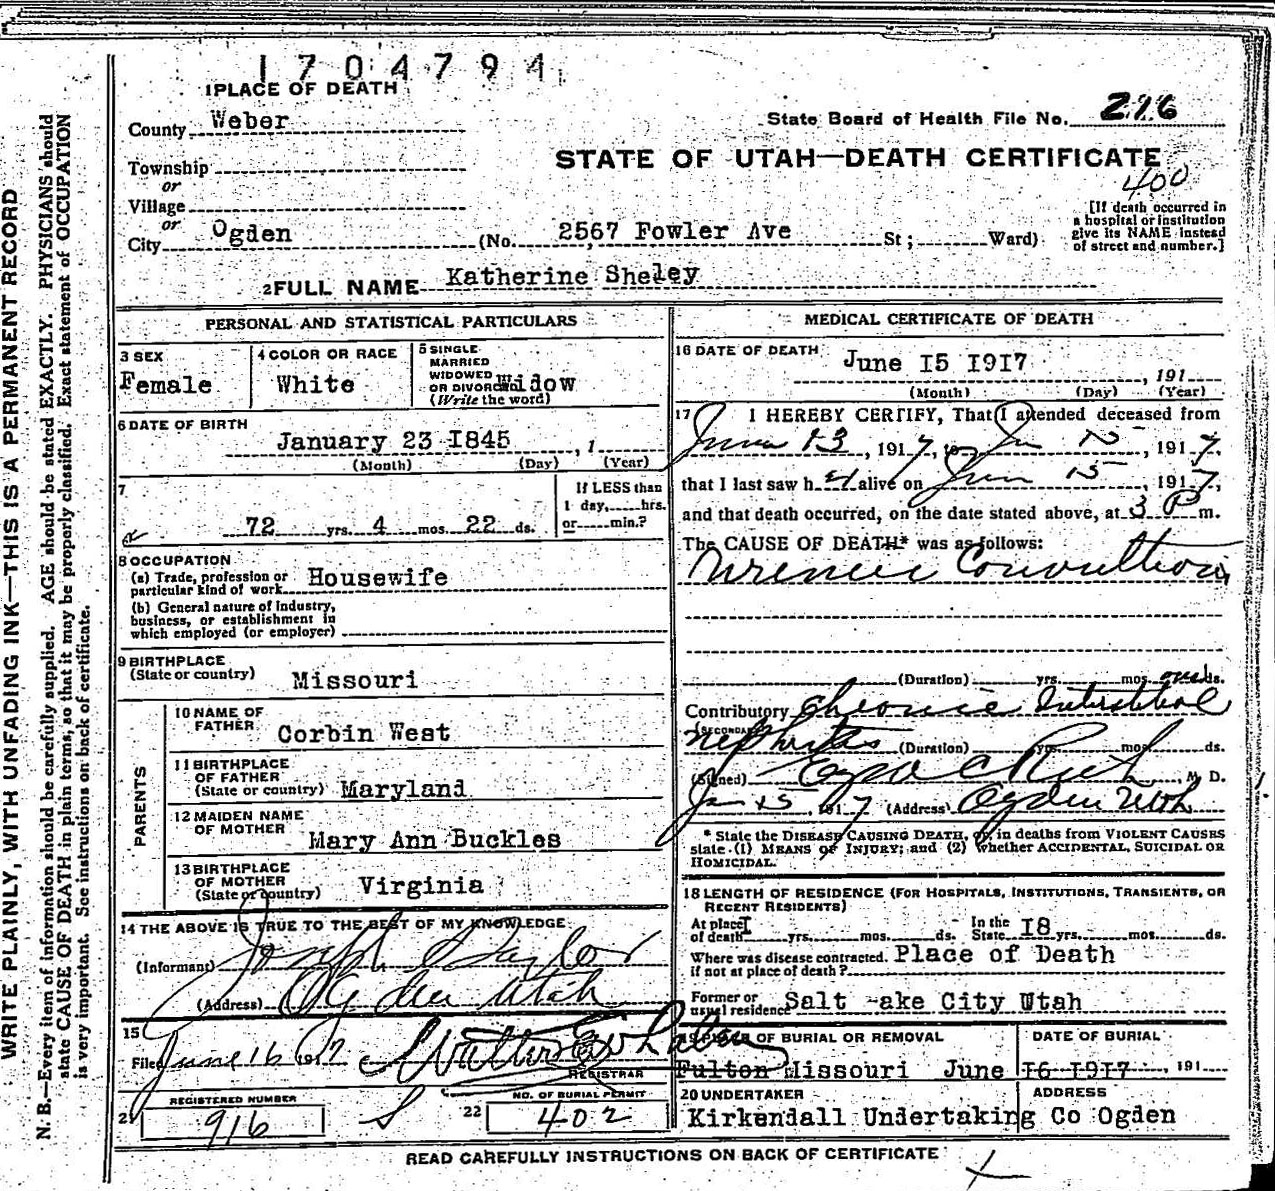 1704794
1 PLACE OF DEATH
County Weber
State Board of Health File No. 276
STATE OF UTAH—DEATH CERTIFICATE
400
Township
or
Village
or
City Ogden (No. 2567 Fowler Ave St; Ward)
[If death occurred in
a hospital or institution
give its NAME instead
of street and number.]
2 FULL NAME Katherine Sheley
PERSONAL AND STATISTICAL PARTICULARS
3 SEX
Female
4 COLOR OR RACE
White
5 SINGLE
MARRIED
WIDOWED
OR DIVORCED
(Write the word)
Widow
6 DATE OF BIRTH
January 23 I845, 1
(Month) (Day) (Year)
7
72 yrs. 4 mos. 22 ds.
If LESS than
1 day, hrs.
or min.?
8 OCCUPATION
(a) Trade, profession or
particular kind of work Housewife
(b) General nature of industry,
business, or establishment in
which employed (or employer)
9 BIRTHPLACE
(State or country) Missouri
PARENTS
10 NAME OF
FATHER Corbin West
11 BIRTHPLACE
OF FATHER
(State or country) Maryland
12 MAIDEN NAME
OF MOTHER Mary Ann Buckles
13 BIRTHPLACE
OF MOTHER
(State or country) Virginia
14 THE ABOVE IS TRUE TO THE BEST OF MY KNOWLEDGE
(Informant) Joseph
(Address) Ogden Utah
15
Filed June 16 1917
REGISTRAR
REGISTERED NUMBER
21 916
NO. OF BURIAL PERMIT
22 402
MEDICAL CERTIFICATE OF DEATH
16 DATE OF DEATH June I5 I9I7
, 191
(Month) (Day) (Year)
17 I HEREBY CERTIFY, That I attended deceased from
June 13, 1917, to Jun 15, 1917,
that I last saw her alive on Jun 15, 1917,
and that death occurred, on the date stated above, at 3 P m.
The CAUSE OF DEATH* was as follows:
Uremic Convultions
(Duration) yrs. mos. one ds.
Contributory Chronic Interstitial
SECONDARY
nephritis (Duration) yrs. mos. ds.
(Signed) Ezra C Rich, M D.
Jun 15, 1917 (Address) Ogden Utah
* State the DISEASE CAUSING DEATH, or, in deaths from VIOLENT CAUSES
state (1) MEANS OF INJURY; and (2) whether ACCIDENTAL, SUICIDAL OR
HOMICIDAL.
18 LENGTH OF RESIDENCE (FOR HOSPITALS, INSTITUTIONS, TRANSIENTS, OR
RECENT RESIDENTS)
At place
of death I yrs. mos. ds. In the
State I8 yrs. mos. ds.
Where was disease contracted. Place of Death
if not at place of death?
Former or
usual residence Salt -ake City Utah
19 PLACE OF BURIAL OR REMOVAL
Fulton Missouri June
DATE OF BURIAL
I6 I9I7, 191
20 UNDERTAKER
Kirkendall Undertaking Co Ogden
ADDRESS
READ CAREFULLY INSTRUCTIONS ON BACK OF CERTIFICATE
WRITE PLAINLY, WITH UNFADING INK—THIS IS A PERMANENT RECORD
N. B.—Every item of information should be carefully supplied. AGE should be stated EXACTLY. PHYSICIANS should
state CAUSE OF DEATH in plain terms, so that it may be properly classified. Exact statement of OCCUPATION
is very important. See instructions on back of certificate.